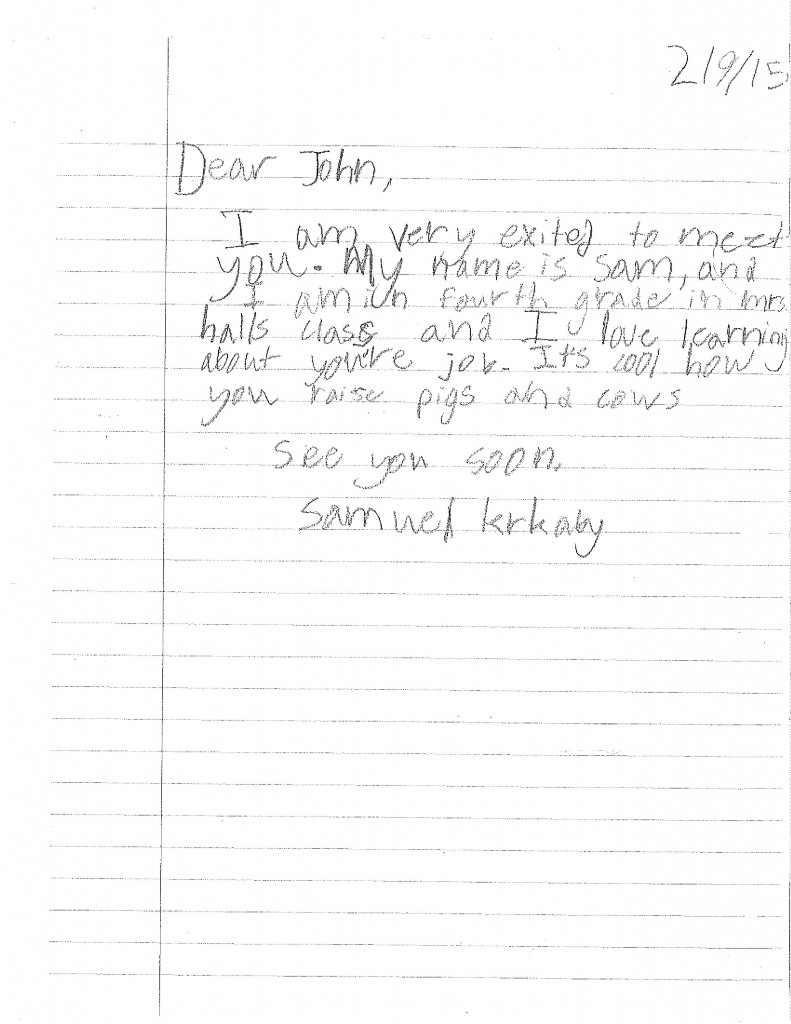 2/9/15
Dear John,
I am very exited to meet
you. My name is Sam, and
I am in fourth grade in mrs
halls class and I love learning
about you're job. It's cool how
you raise pigs and cows
see you soon.
Samuel krkaby